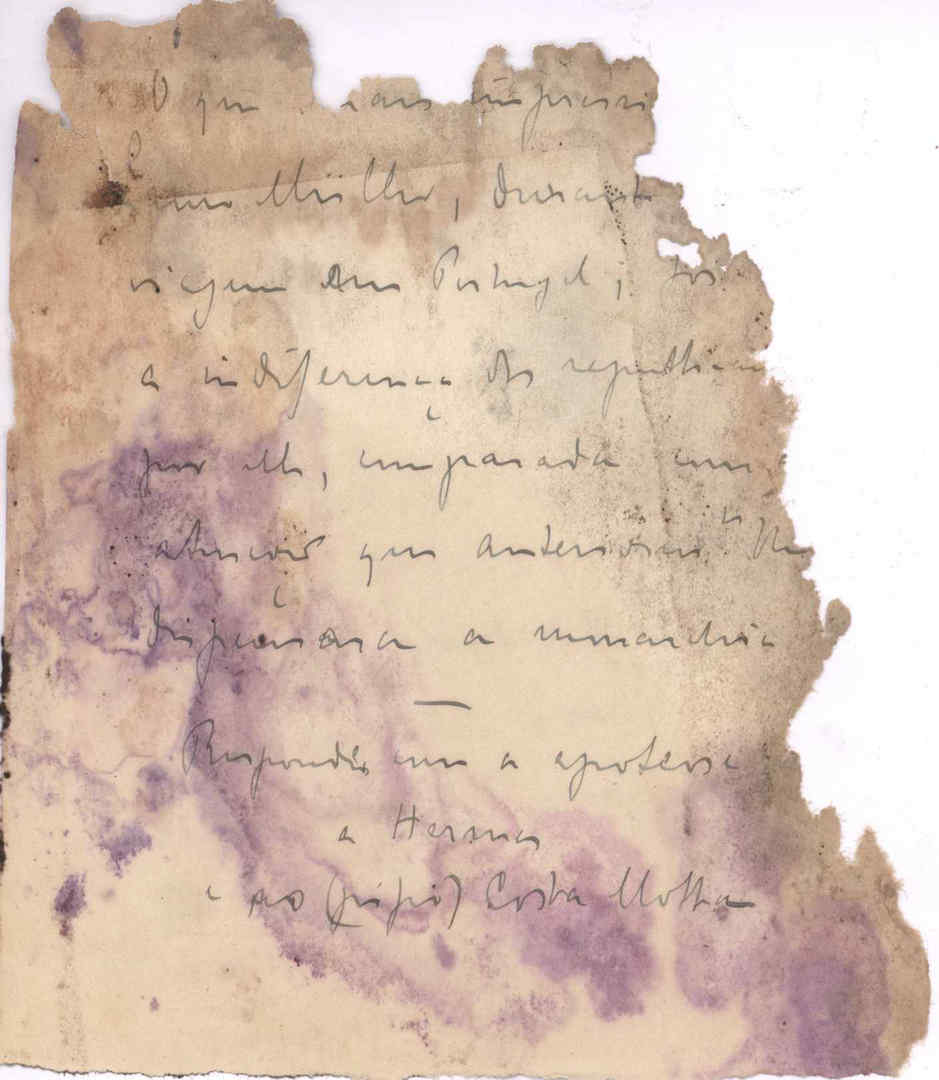 O que mais impressi
Lauro Müller, durante
viagem em Portugal, foi
a indiferença dos republican
por elle, comparada com
atenção que anteriormen
dispensara a monarchia
—
Respondeu com a apoteose
a Hermes
e ao (próprio) Costa Motta